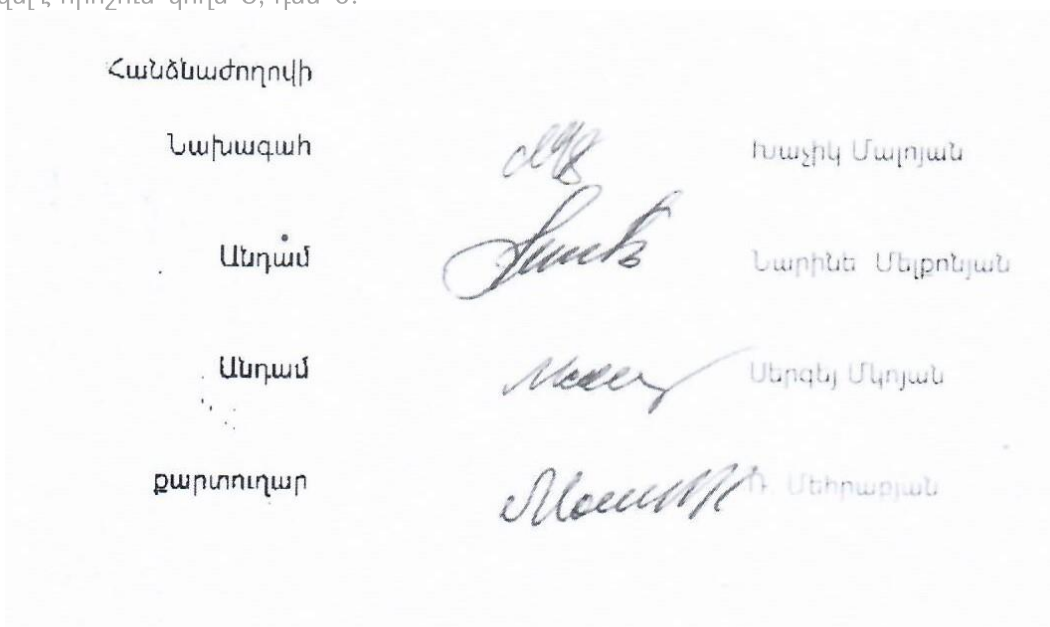 Հանձնաժողովի
Նախագահ Խաչիկ Մալոյան
Անդամ Նարինե Մելքոնյան
Անդամ Սերգեյ Մկոյան
քարտուղար Ռ. Մեհրաբյան